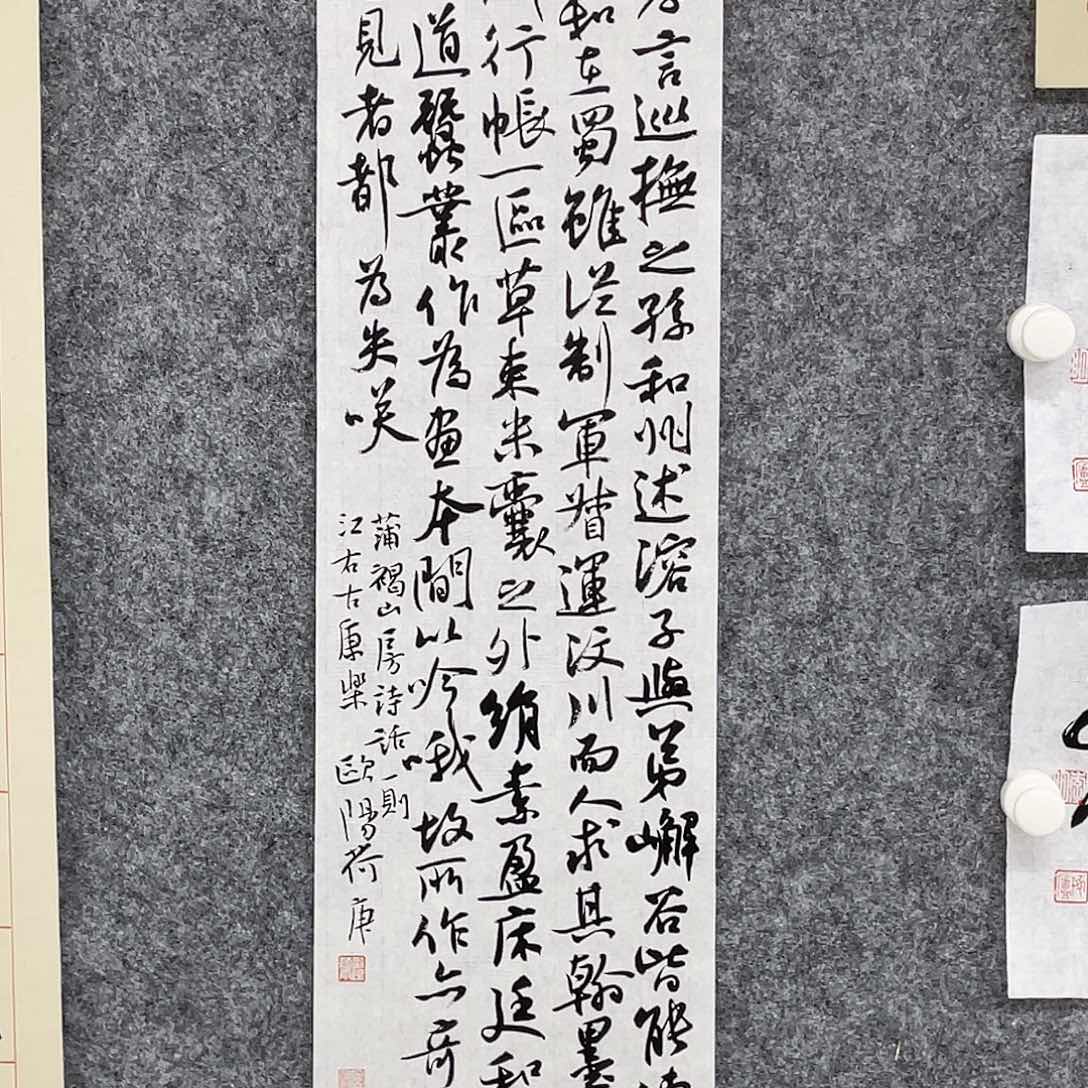 言巡撫之孫和州述溶子與弟嶰谷皆能
和在蜀雖從制軍督運汶川而人求其翰墨
行帳一區草束米囊之外絹素盈床廷和
道蠶叢作為畫本間以吟哦故所作亦奇
見者都為失笑
蒲褐山房詩話一則
江右古康樂 歐陽荷庚